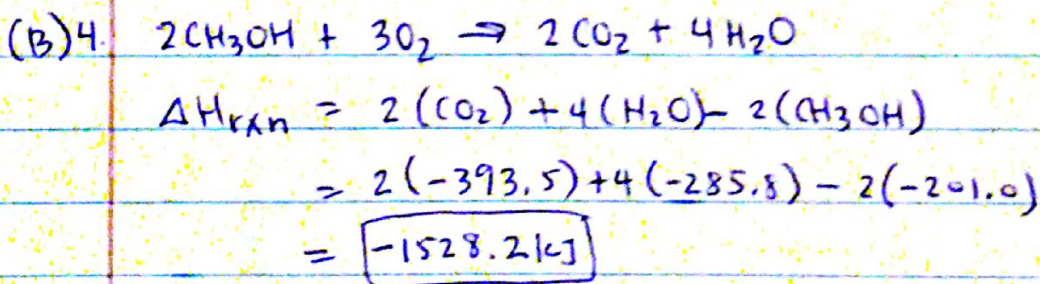 (B)4. 2CH₃OH + 3O₂ → 2CO₂ + 4H₂O
ΔHrxn = 2(CO₂) + 4(H₂O) - 2(CH₃OH)
= 2(-393.5) + 4(-285.8) - 2(-201.0)
= -1528.2 kJ